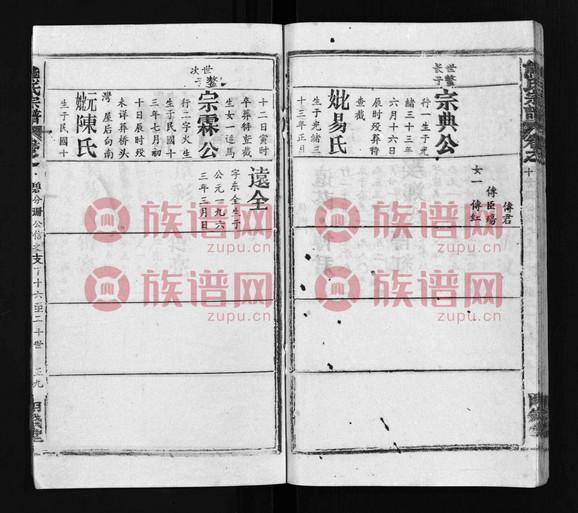 傳君
傳臣 瑒
女一 傳紅
世鏊
長子
宗典公
行一生于光
緒三十三年
六月十六日
辰時歿葬詩
查載
妣易氏
生于光緒三
十三年正月
十二日寅時
卒葬特查載
生女一适馬
世鏊
次子
宗霖公
行二字火生
生于民國十
三年七月初
十日辰時歿
未详葬桥头
灣屋后向南
元妣陳氏
生于民國十
遠全
字东全生于
公元一九六
三年三月日
氏宗譜
公信之支下十六至二十世
三九
族谱网
zupu.cn
族谱网
zupu.cn
族谱网
zupu.cn
族谱网
zupu.cn
族谱网
zupu.cn
族谱网
zupu.cn